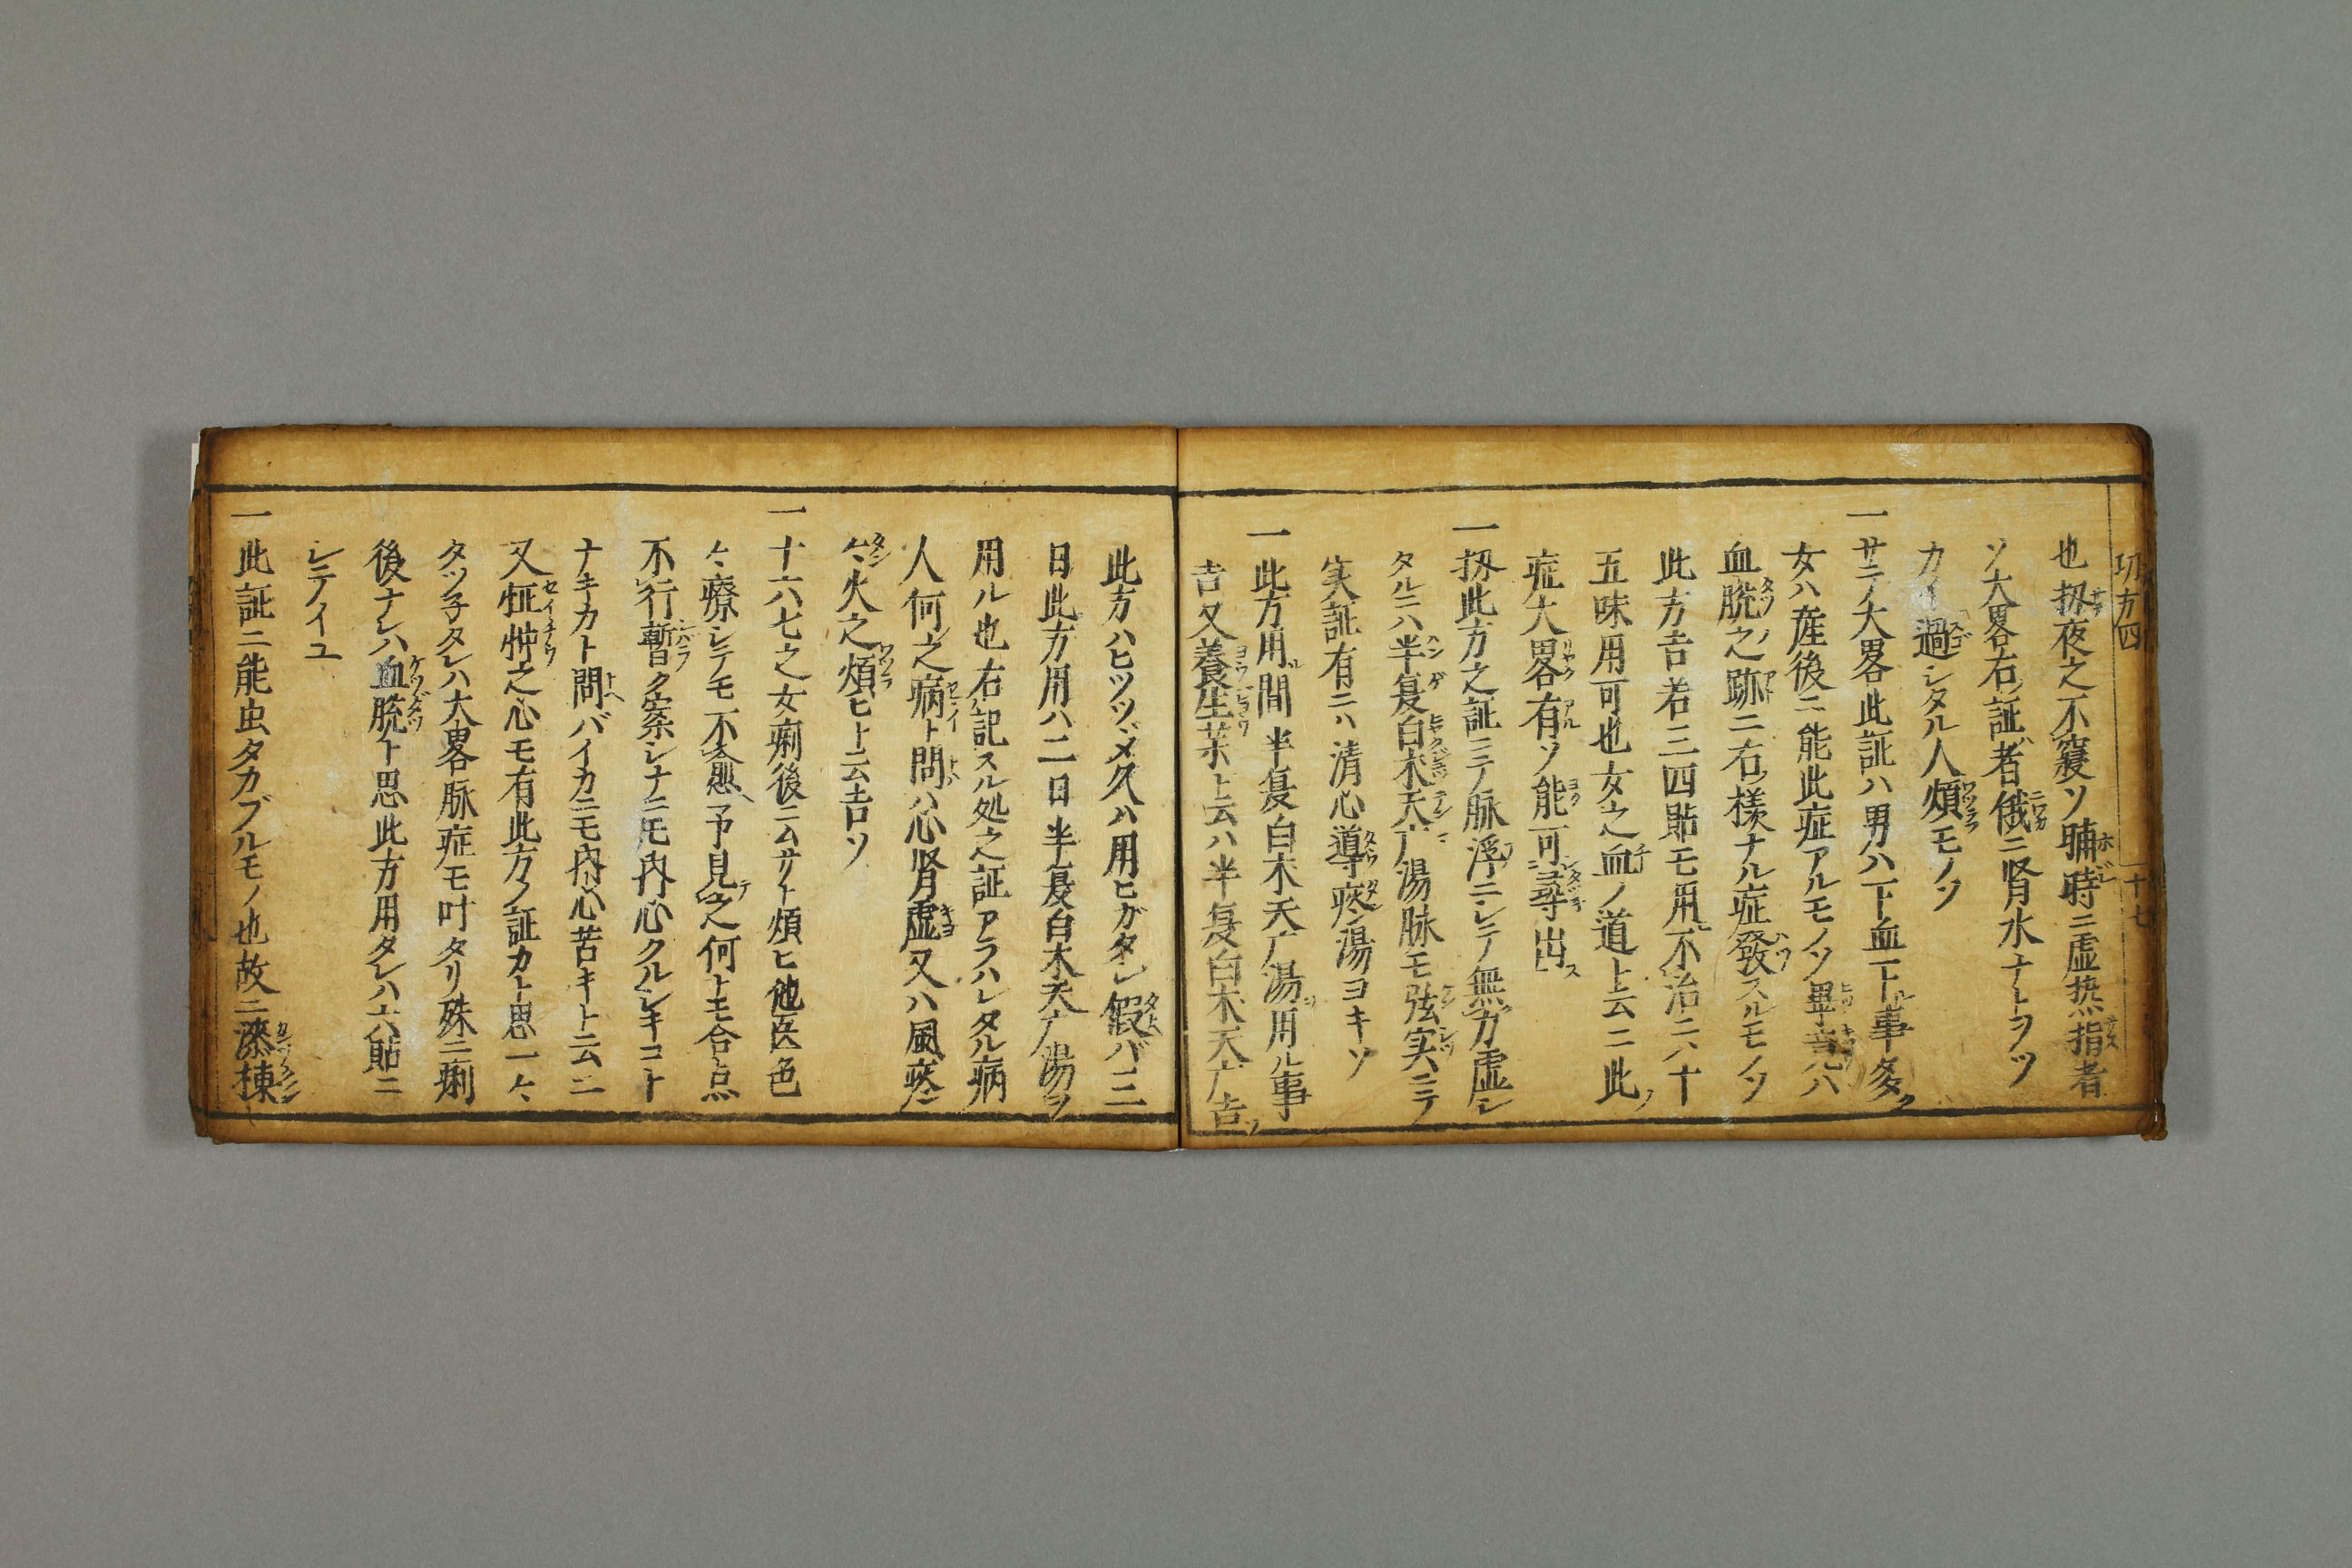 功方四 十七
也扨夜之不寝ソ晡時ニ虚热損者
ソ大畧右ノ証ノ者俄ニ肾水ナトヲツ
カイ過シタル人煩モノソ
一 サテ大畧此証ハ男ハ下血下ル事多ク
女ハ産後ニ能此症アルモノソ畢竟ハ
血脱之跡ニ右ノ様ナル症發スルモノソ
此方吉若三四貼モ用不治ニハ十
五味用可也女之血ノ道ト云ニ此ノ
症大畧有ソ能可尋出ス
一 扨此方之証ニテ脉浮ニシテ無力虚シ
タルニハ半夏白术天广湯脉モ弦実ニテ
実証有ニハ清心導痰湯ヨキソ
一 此方用ル間半夏白术天广湯ヲ用ル事
吉又養生薬ト云ハ半夏白术天广吉ソ
此方ハヒツツヾメ久ハ用ヒガタシ假バ三
日此方用ハ二日半夏白术天广湯ヲ
用ル也右ニ記スル処之証アラハレタル病
人何之病ト問ハ心肾虚又ハ風痰
火之煩ヒト云吉ソ
一 十六七之女痢後ニ云サト煩ヒ他医色
々療シテモ不愈予見之何トモ合点
不行暫ク案シナニ㐧モ内心クルシキコト
ナキカト問バイカニモ内心苦キト云ニ
又怔忡之心モ有此方ノ証カト思一々
タツ子タレハ大畧脉症モ叶タリ殊ニ痢
後ナレハ血脱ト思此方用タレハ六貼ニ
シテイユ
一 此証ニ能虫タカブルモノ也故ニ添楝